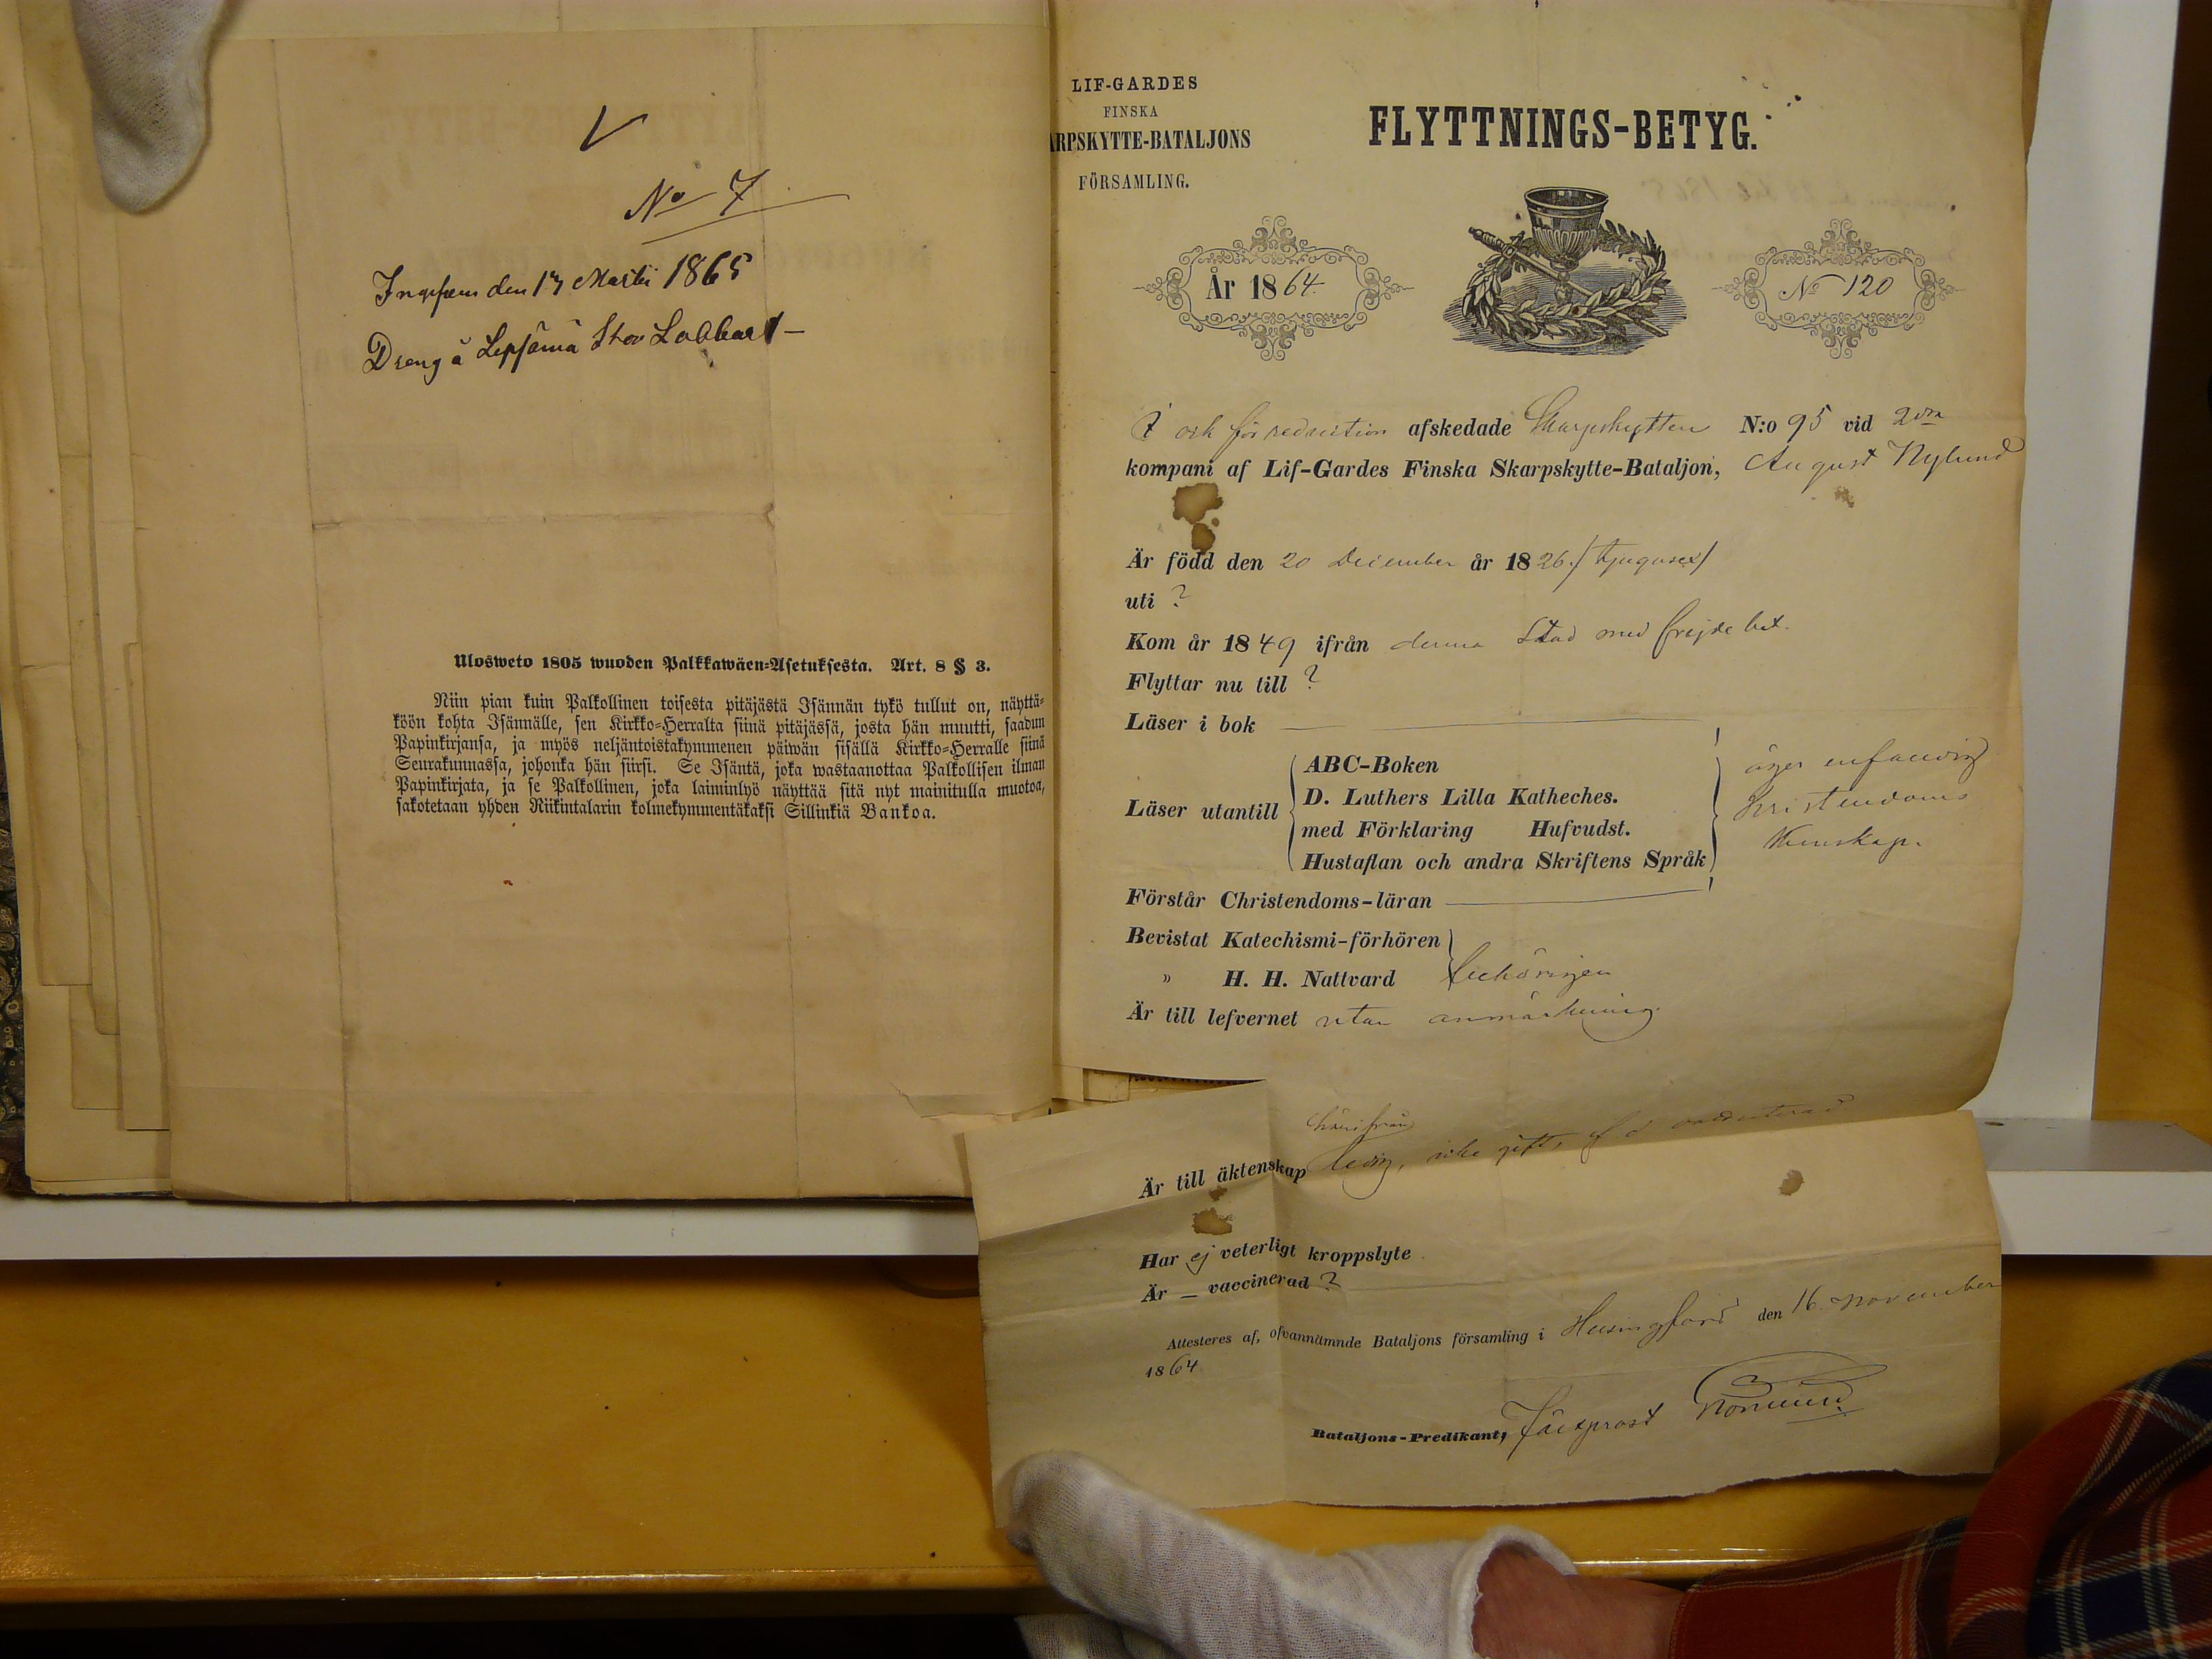 No 7
den 17 Martii 1865
Dreng å Lepsämä Stor Labbart
Ulosweto 1805 wuoden Palkkawäen-Asetuksesta. Art. 8 § 3.
Niin pian kuin Palkollinen toisesta pitäjästä Isännän tykö tullut on, näyttä-
köön kohta Isännälle, sen Kirkko-Herralta siinä pitäjässä, josta hän muutti, saadun
Papinkirjansa, ja myös neljäntoistakymmenen päiwän sisällä Kirkko-Herralle siinä
Seurakunnassa, johonka hän siirsi. Se Isäntä, joka wastaanottaa Palkollisen ilman
Papinkirjata, ja se Palkollinen, joka laiminlyö näyttää sitä nyt mainitulla muotoa,
sakotetaan yhden Riikintalarin kolmekymmentäkaksi Sillinkiä Bankoa.
LIF-GARDES
FINSKA
ARPSKYTTE-BATALJONS
FÖRSAMLING.
FLYTTNINGS-BETYG.
År 1864
No 120
och för reduction afskedade Skarpskytten N:o 95 vid 2dra
kompani af Lif-Gardes Finska Skarpskytte-Bataljon, August Nylund
Är född den 20 December år 1826./tjugusex/
uti ?
Kom år 1849 ifrån denna Stad med frejdebet.
Flyttar nu till ?
Läser i bok
Läser utantill
ABC-Boken
D. Luthers Lilla Katheches.
med Förklaring Hufvudst.
Hustaflan och andra Skriftens Språk
äger enfaldig
kristendoms
kunskap.
Förstår Christendoms-läran
Bevistat Katechismi-förhören
" H. H. Nattvard behörigen
Är till lefvernet utan anmärkning.
härifrån
Är till äktenskap ledig, icke gift,
Har ej veterligt kroppslyte
Är — vaccinerad ?
Attesteres af, ofvannämnde Bataljons församling i Helsingfors den 16 November
1864
Bataljons-Predikant,